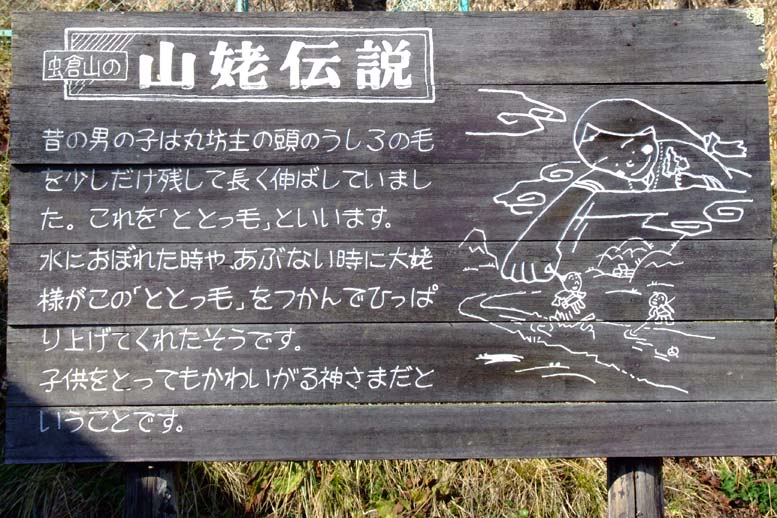 虫倉山の
山姥伝説
昔の男の子は丸坊主の頭のうしろの毛
を少しだけ残して長く伸ばしていまし
た。これを「ととっ毛」といいます。
水におぼれた時や、あぶない時に大姥
様がこの「ととっ毛」をつかんでひっぱ
り上げてくれたそうです。
子供をとってもかわいがる神さまだと
いうことです。